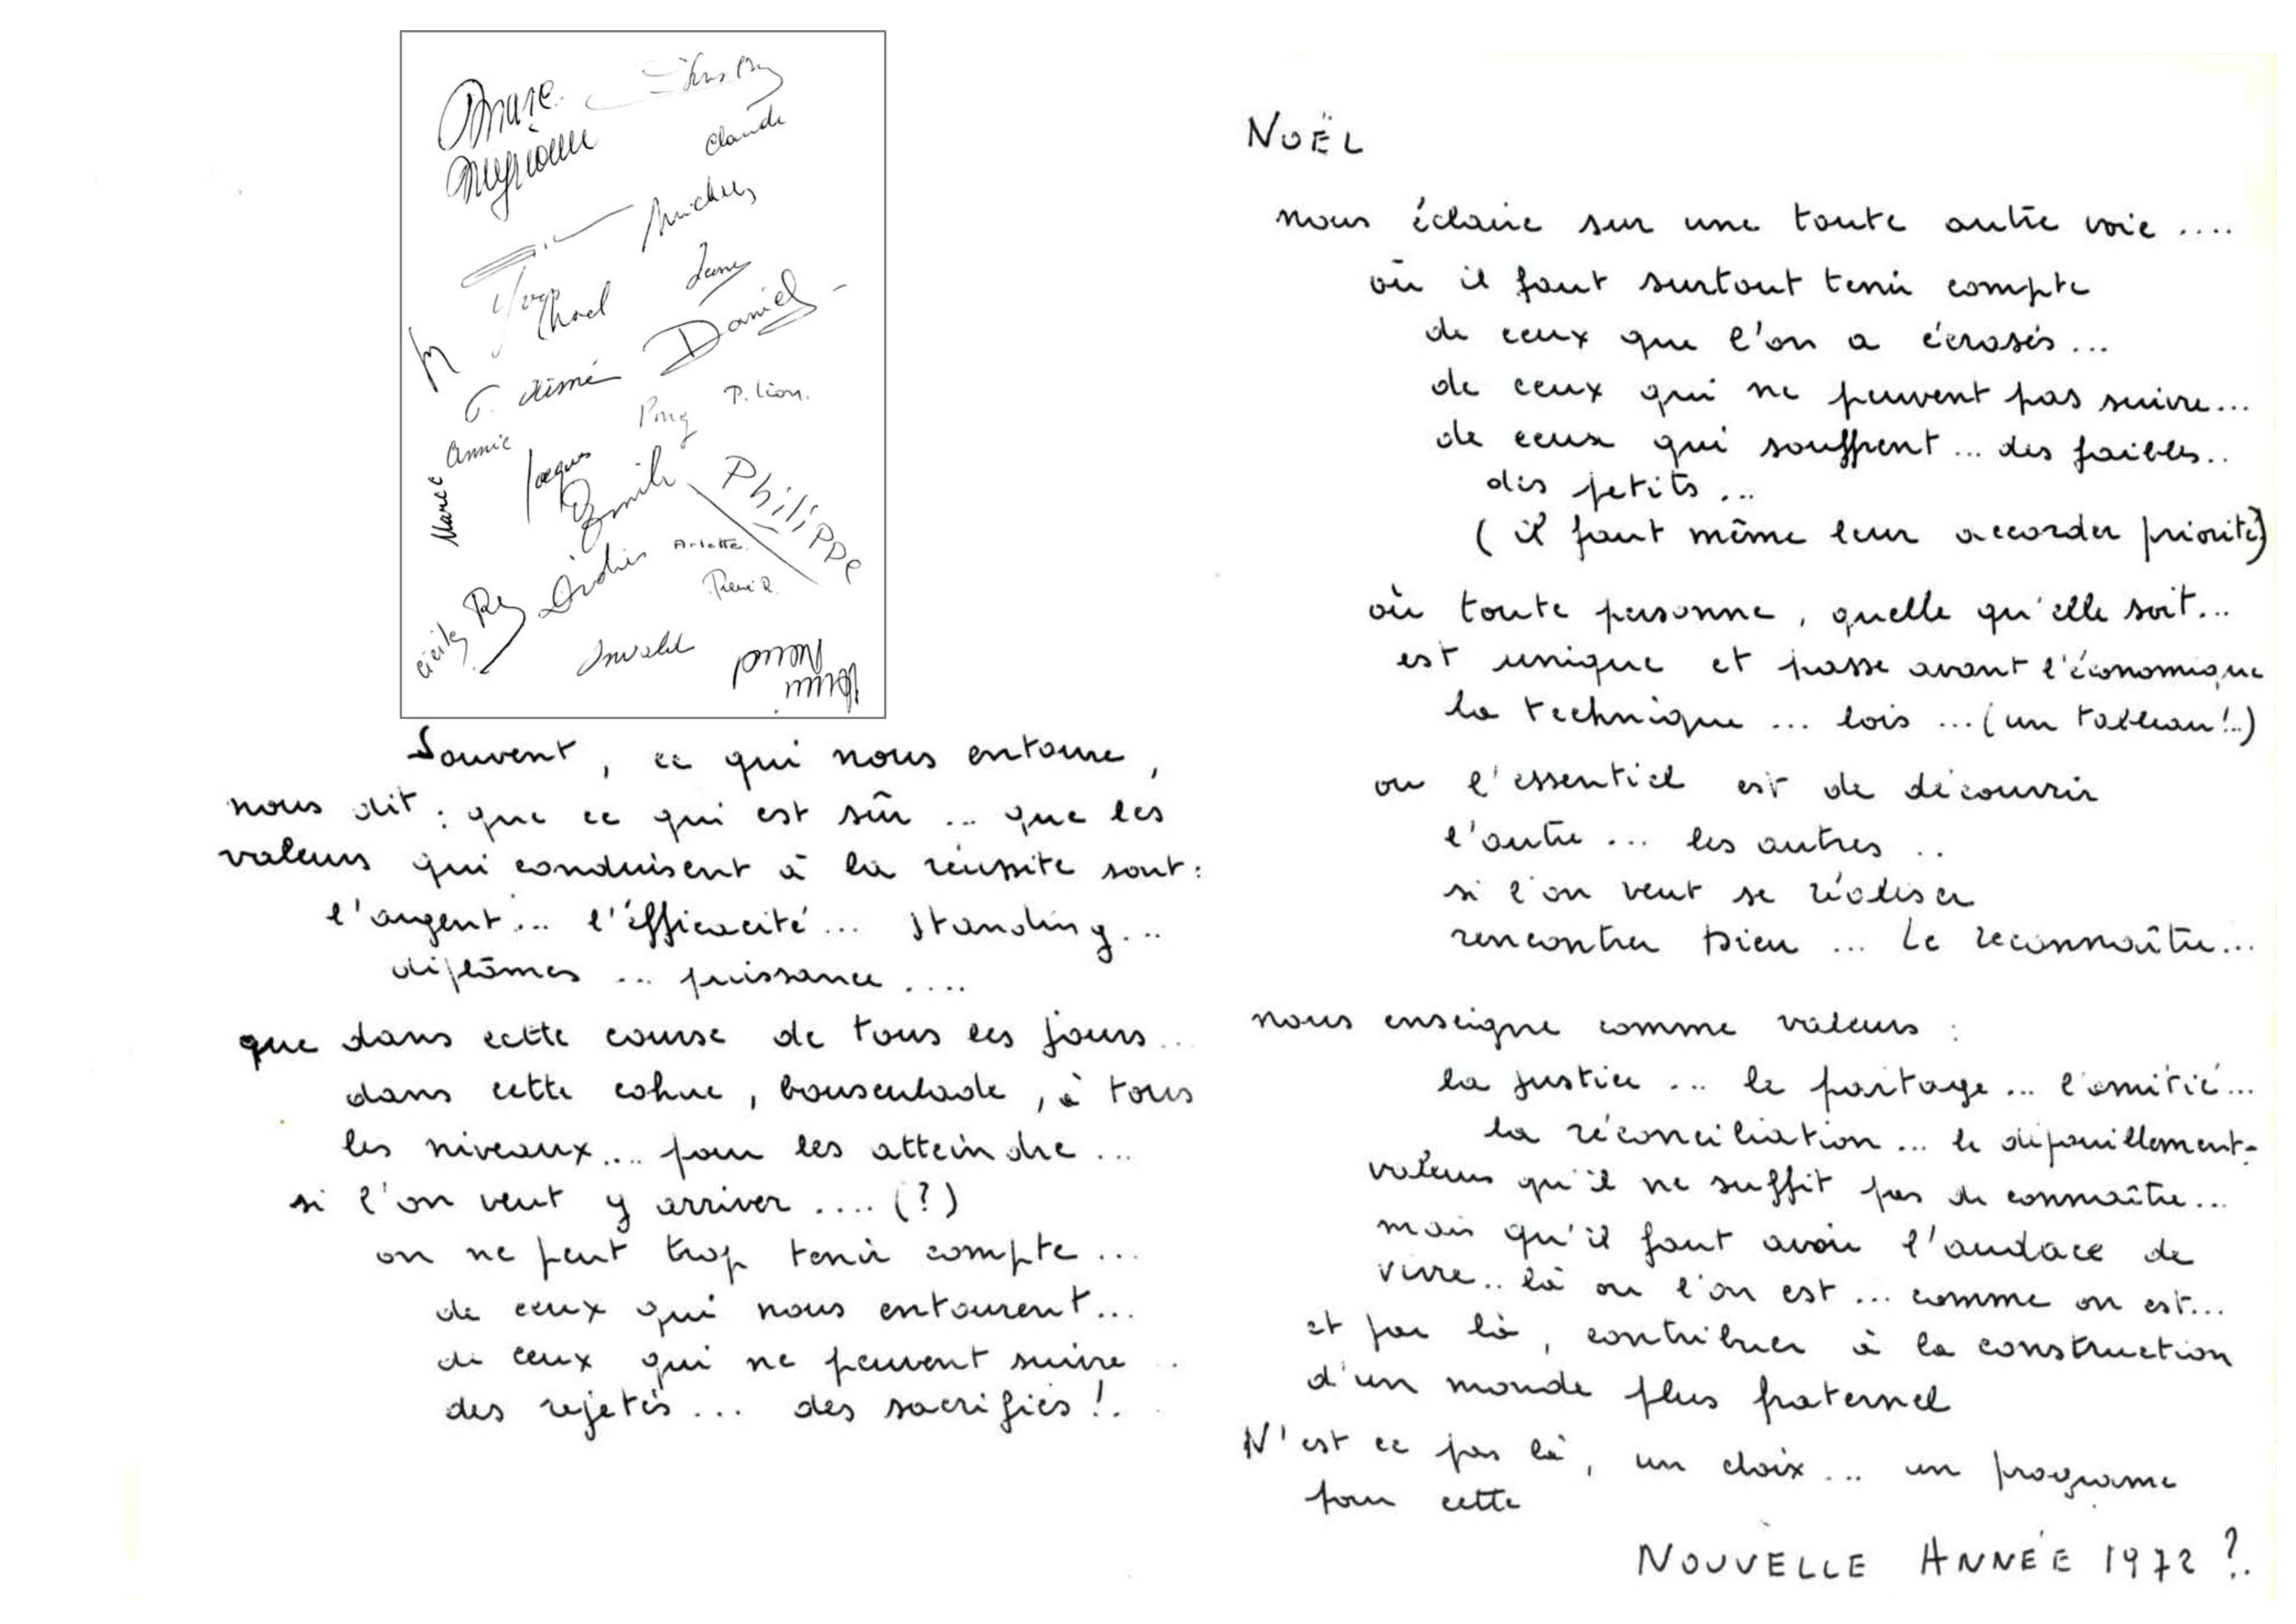 Claude
Yves
Daniel
Aimé
P. Lion.
Annie
Jacques
Philippe
Arlette
Souvent, ce qui nous entoure,
nous dit : que ce qui est sûr ... que les
valeurs qui conduisent à la réussite sont :
l'argent ... l'éfficacité ... standing ...
diplômes ... puissance ....
que dans cette course de tous les jours ...
dans cette cohue, bousculade, à tous
les niveaux .... pour les atteindre ...
si l'on veut y arriver .... (?)
on ne peut trop tenir compte ...
de ceux qui nous entourent ...
de ceux qui ne peuvent suivre ..
des rejetés ... des sacrifiés !.
NOËL
nous éclaire sur une toute autre voie ....
où il faut surtout tenir compte
de ceux que l'on a écrasés ...
de ceux qui ne peuvent pas suivre ...
de ceux qui souffrent ... des faibles ..
des petits ...
( il faut même leur accorder priorité)
où toute personne, quelle qu'elle soit ...
est unique et passe avant l'économique
la technique ... lois ... (un tableau !..)
ou l'essentiel est de découvrir
l'autre ... les autres ..
si l'on veut se réaliser
rencontrer Dieu ... Le reconnaître ...
nous enseigne comme valeurs :
la justice ... le partage ... l'amitié ...
la réconciliation ... le dépouillement -
valeurs qu'il ne suffit pas de connaître ...
mais qu'il faut avoir l'audace de
vivre .. là ou l'on est ... comme on est ...
et par là, contribuer à la construction
d'un monde plus fraternel
N'est ce pas là, un choix ... un programe
pour cette
NOUVELLE ANNÉE 1972 ?.